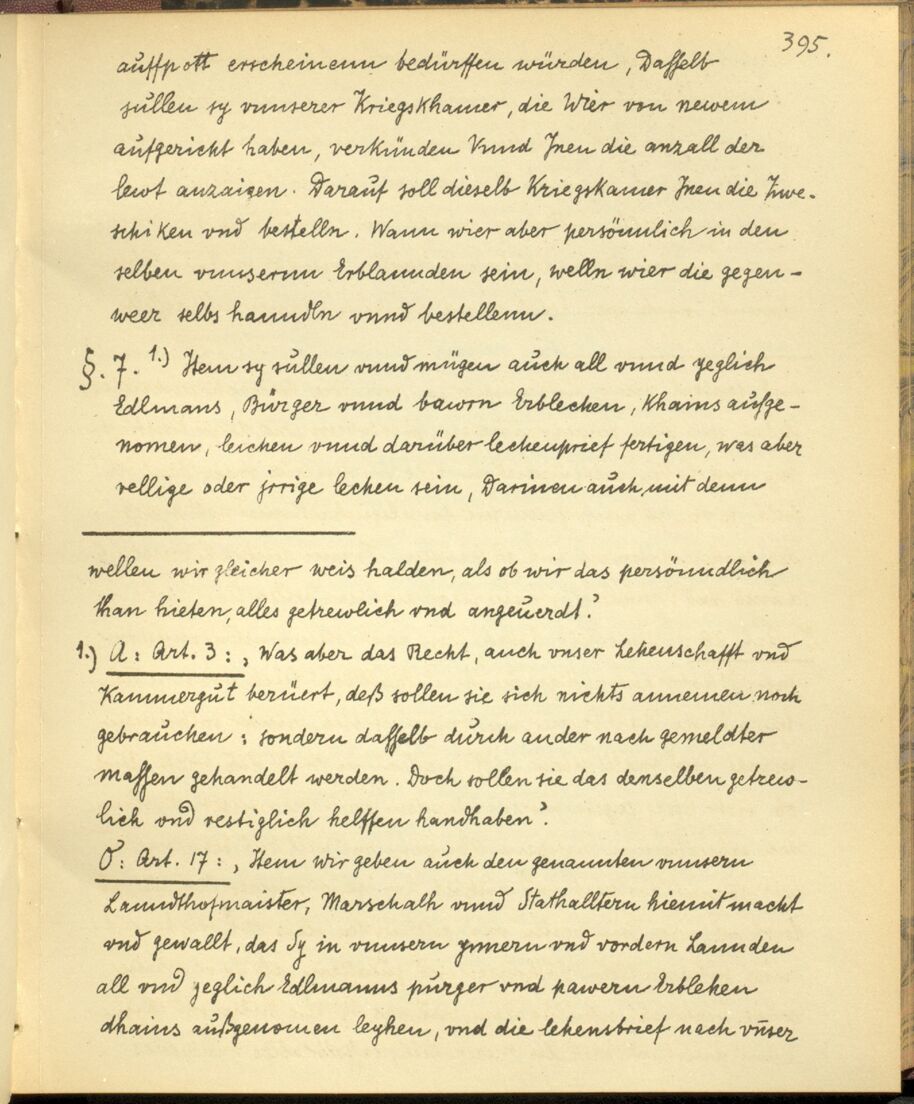 395.
auffpott erscheinenn bedürffen würden, Dasselb
sullen sy vnnserer Kriegskhamer, die Wier von newem
aufgericht haben, verkünden Vnnd Jnen die anzall der
lewt anzaigen. Darauf soll dieselb Kriegskamer Jnen die Zwe-
schiken vnd bestelln. Wann wier aber persönnlich in den
selben vnnsernn Erblannden sein, welln wier die gegen-
weer selbs hanndln vnnd bestellenn.
§. 7. 1.) Item sy sullen vnnd mügen auch all vnnd yeglich
Edlmans, Bürger vnnd bawrn Erblechen, khains aufge-
nomen, leichen vnnd darüber lechenprief fertigen, was aber
vellige oder jrrige lechen sein, Darinen auch mit denn
wellen wir gleicher weis halden, als ob wir das persönndlich
than hieten, alles getrewlich vnd angeuerdt.'
1.) A: Art. 3:, Was aber das Recht, auch vnser Lehenschafft vnd
Kammergut berüert, deß sollen sie sich nichts annemen noch
gebrauchen: sondern dasselb durch ander nach gemeldter
massen gehandelt werden. Doch sollen sie das denselben getrew-
lich vnd vestiglich helffen handhaben'.
O: Art. 17:, Item wir geben auch den genannten vnnsern
Lanndthofmaister, Marschalh vnnd Stathalltern hiemit macht
vnd gewallt, das Sy in vnnsern ynnern vnd vordern Lannden
all vnd yeglich Edlmanns purger vnd pawern Erblehen
dhains außgenomen leyhen, vnd die lehensbrief nach vn̄ser